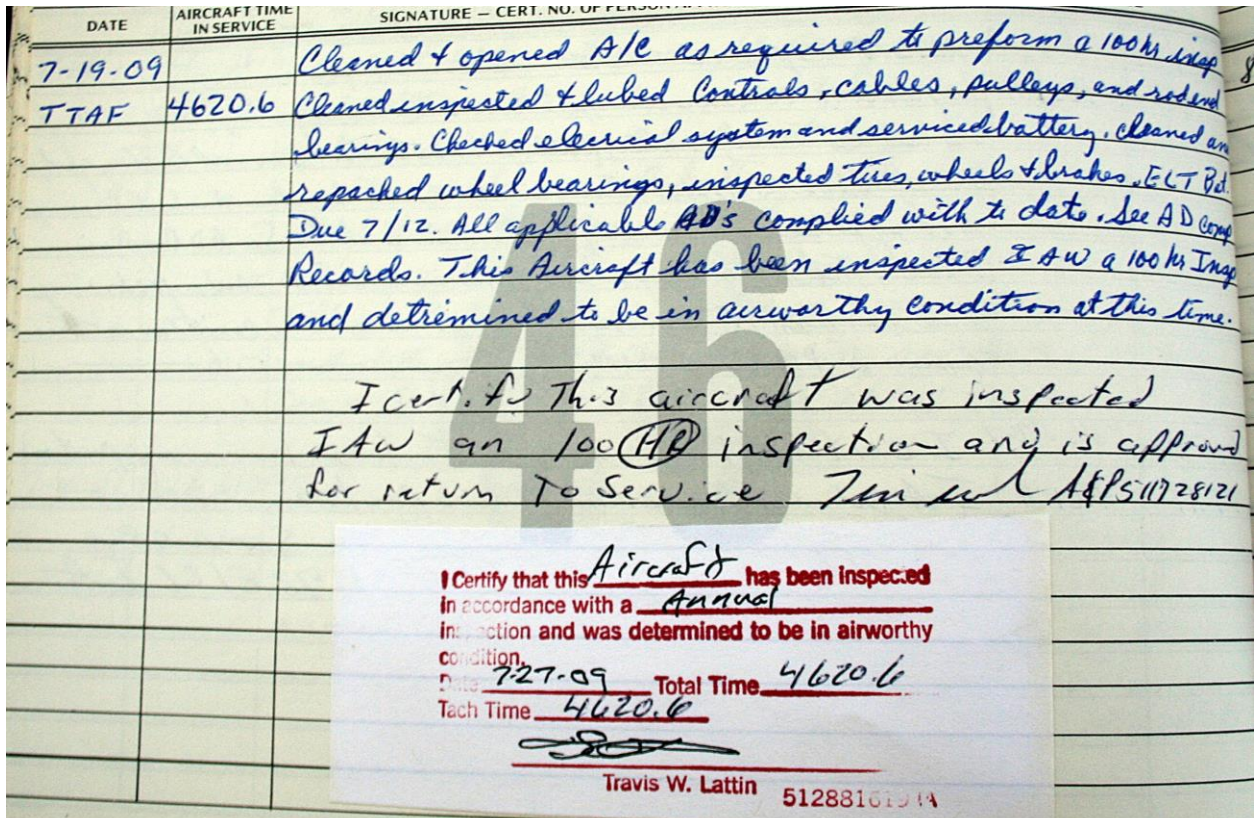 DATE
AIRCRAFT TIME
IN SERVICE
SIGNATURE — CERT. NO. OF PERSON
7-19-09
Cleaned & opened A/C as required to preform a 100 hr insp
TTAF 4620.6
Cleaned inspected & lubed Controls, cables, pulleys, and rod end
bearings. Checked elecrical system and serviced battery. Cleaned an
repacked wheel bearings, inspected tires, wheels & brakes. ELT Bat.
Due 7/12. All applicable AD's complied with to date. See AD comp
Records. This Aircraft has been inspected IAW a 100 hr Insp
and detremined to be in airworthy condition at this time.
46
I certify This aircraft was inspected
IAW an 100 HR inspection and is approved
for return To Service A&P
I Certify that this Aircraft has been inspected
in accordance with a Annual
inspection and was determined to be in airworthy
condition.
Date 7-27-09 Total Time 4620.6
Tach Time 4620.6
Travis W. Lattin